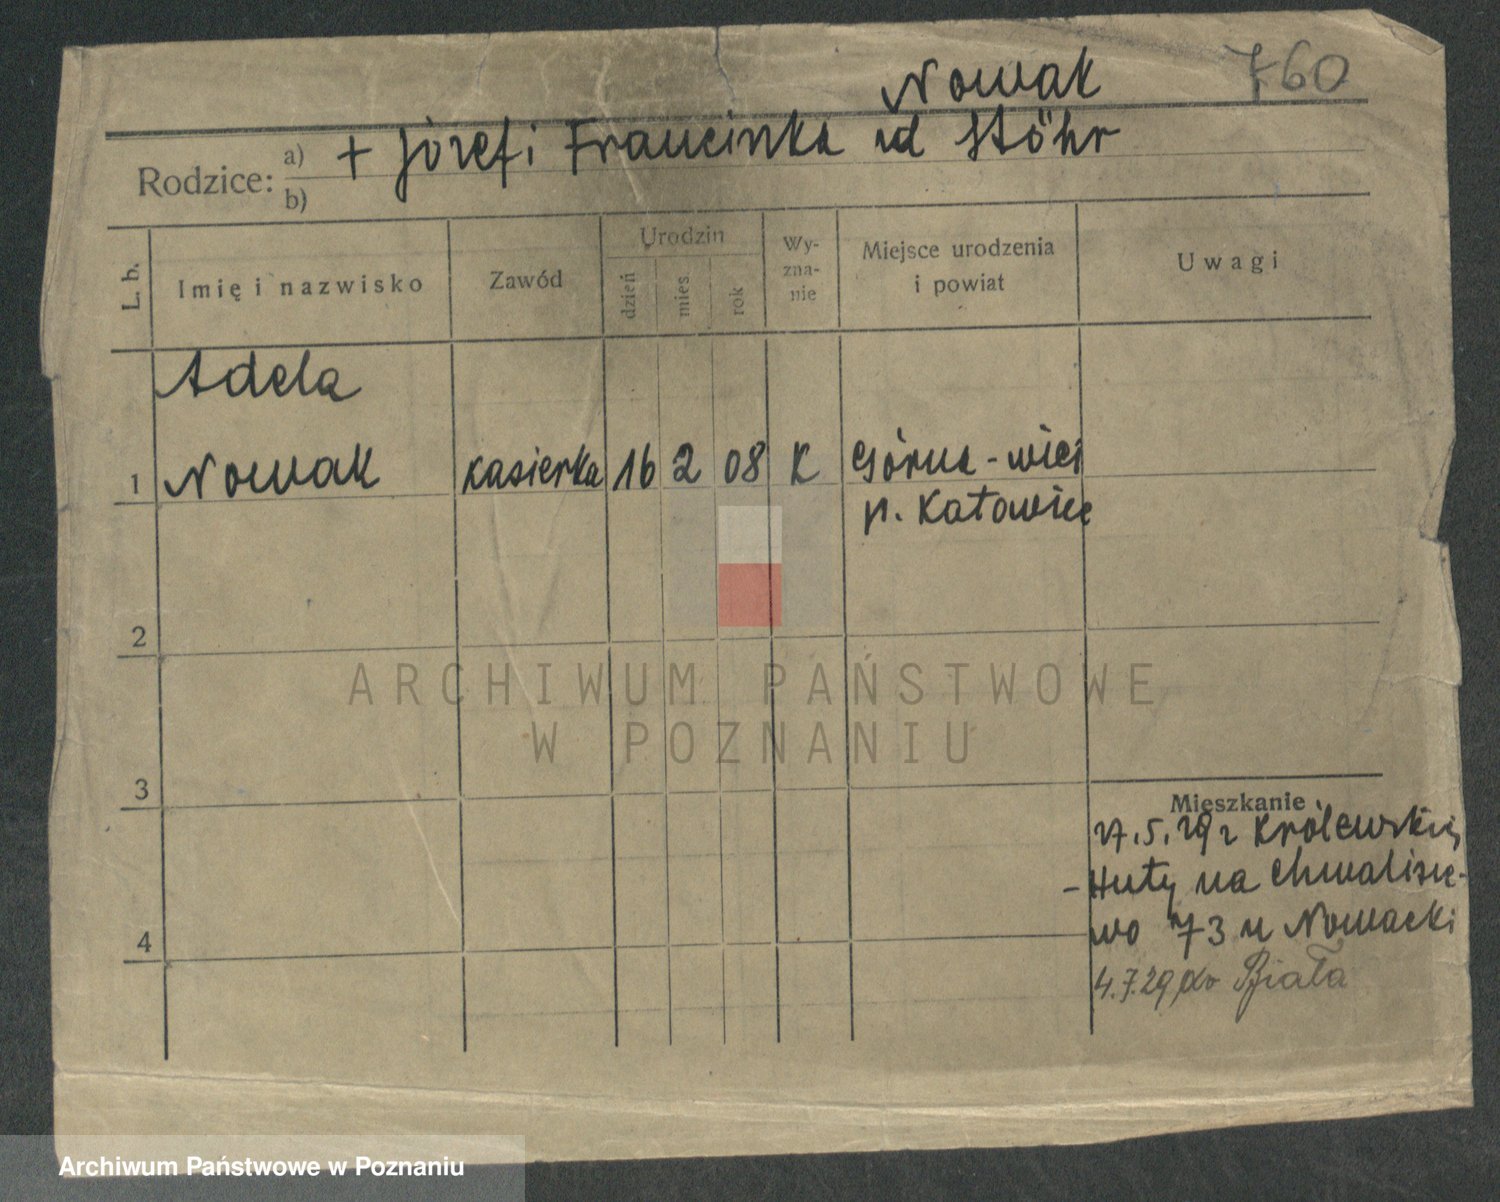 Nowak 760
Rodzice: a) + Józef i Franciszka ud Stöhr
b)
L. b. Imię i nazwisko Zawód Urodzin dzień mies rok Wy-zna-nie Miejsce urodzenia i powiat Uwagi
Adela
1 Nowak kasierka 16 2 08 K Górna-wieś
p. Katowice
2
ARCHIWUM PAŃSTWOWE
W POZNANIU
3
Mieszkanie
27.5.29 z Królewskiej
-Huty na Chwalisze-
wo 73 u Nowacki
4
4.7.29 do Biała
Archiwum Państwowe w Poznaniu